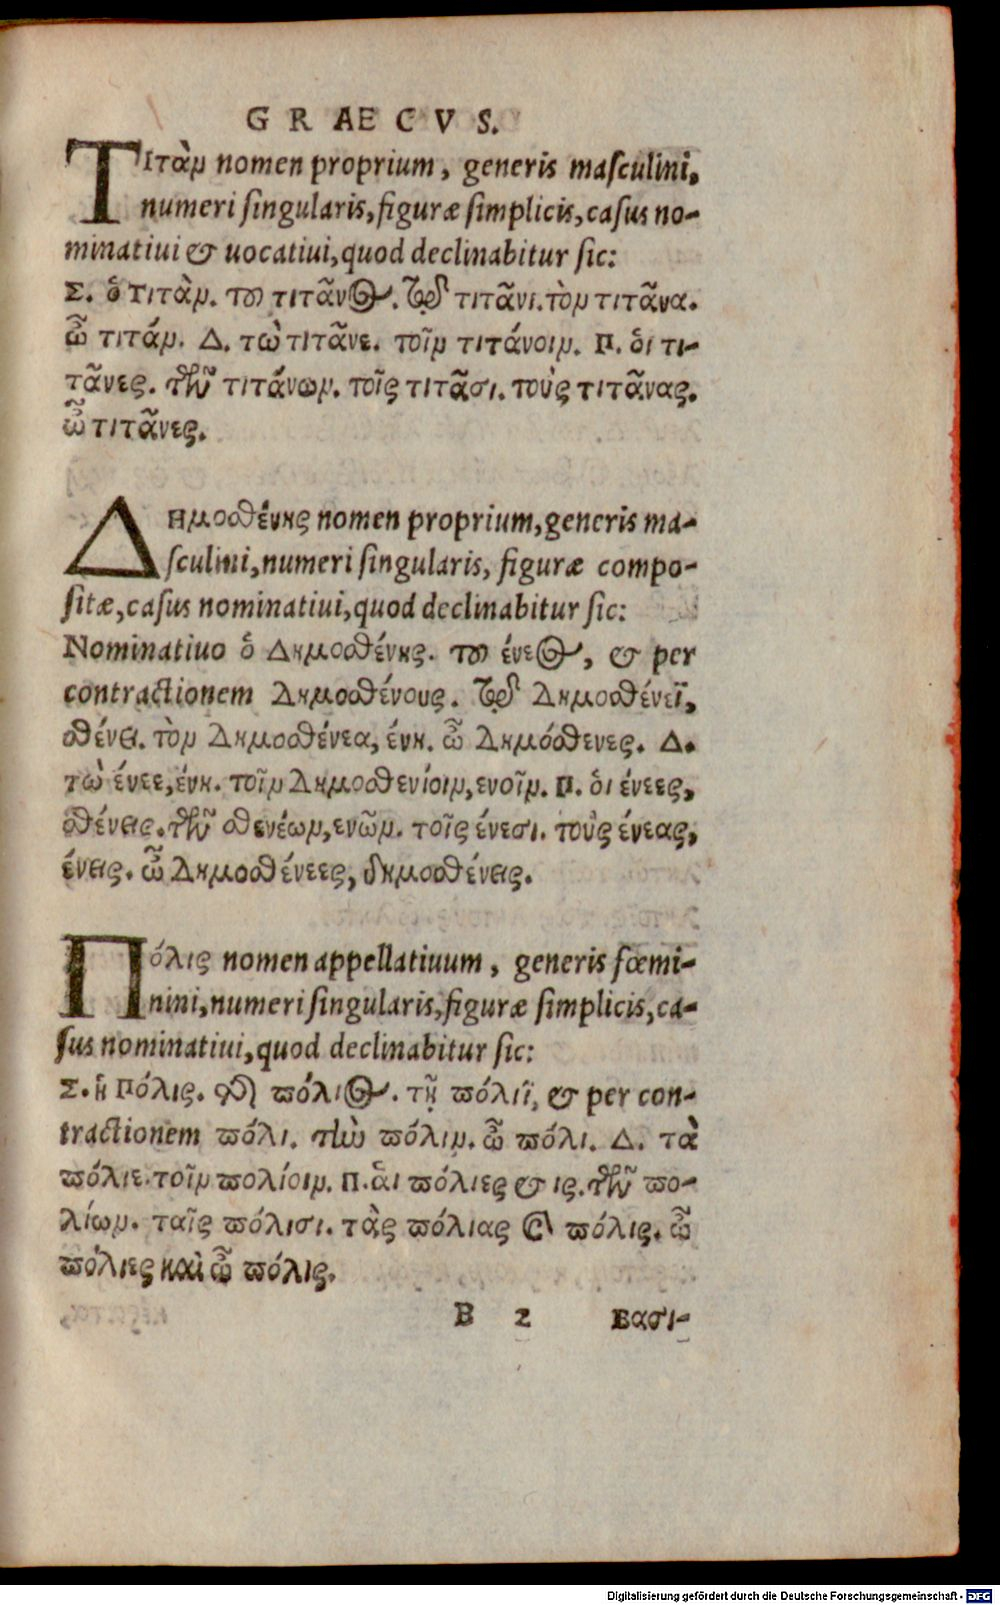 GRAECVS.
Τιτὰν nomen proprium, generis masculini,
numeri singularis, figuræ simplicis, casus no-
minatiui & uocatiui, quod declinabitur sic:
Σ. ὁ Τιτὰν. τοῦ τιτᾶνος. τῷ τιτᾶνι. τὸν τιτᾶνα.
ὦ τιτάν. Δ. τὼ τιτᾶνε. τοῖν τιτάνοιν. Π. ὁι τι-
τᾶνες. τῶν τιτάνων. τοῖς τιτᾶσι. τοὺς τιτᾶνας.
ὦ τιτᾶνες.
Δημοσθένης nomen proprium, generis ma-
sculini, numeri singularis, figuræ compo-
sitæ, casus nominatiui, quod declinabitur sic:
Nominatiuo ὁ Δημοσθένης. τοῦ ένεος, & per
contractionem Δημοσθένους. τῷ Δημοσθένεϊ,
σθένει. τὸν Δημοσθένεα, ένη. ὦ Δημόσθενες. Δ.
τὼ ένεε, ένη. τοῖν Δημοσθενέοιν, ενοῖν. Π. ὁι ένεες,
σθένεις. τῶν σθενέων, ενῶν. τοῖς ένεσι. τοὺς ένεας,
ένεις. ὦ Δημοσθένεες, δημοσθένεις.
Πόλις nomen appellatiuum, generis fœmi-
nini, numeri singularis, figuræ simplicis, ca-
sus nominatiui, quod declinabitur sic:
Σ. ἡ Πόλις. τῆς πόλιος. τῇ πόλιϊ, & per con-
tractionem πόλι. τὴν πόλιν. ὦ πόλι. Δ. τὰ
πόλιε. τοῖν πολίοιν. Π. ἁι πόλιες & ις. τῶν πο-
λίων. ταῖς πόλισι. τὰς πόλιας & πόλις. ὦ
πόλιες καὶ ὦ πόλις.
B 2 Βασι-
Digitalisierung gefördert durch die Deutsche Forschungsgemeinschaft - DFG